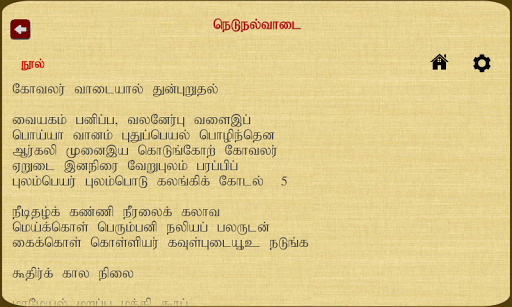 நெடுநல்வாடை
நூல்
கோவலர் வாடையால் துன்புறுதல்
வையகம் பனிப்ப, வலனேர்பு வளைஇப்
பொய்யா வானம் புதுப்பெயல் பொழிந்தென
ஆர்கலி முனைஇய கொடுங்கோற் கோவலர்
ஏறுடை இனநிரை வேறுபுலம் பரப்பிப்
புலம்பெயர் புலம்பொடு கலங்கிக் கோடல் 5
நீடிதழ்க் கண்ணி நீரலைக் கலாவ
மெய்க்கொள் பெரும்பனி நலியப் பலருடன்
கைக்கொள் கொள்ளியர் கவுள்புடையூஉ நடுங்க
கூதிர்க் கால நிலை